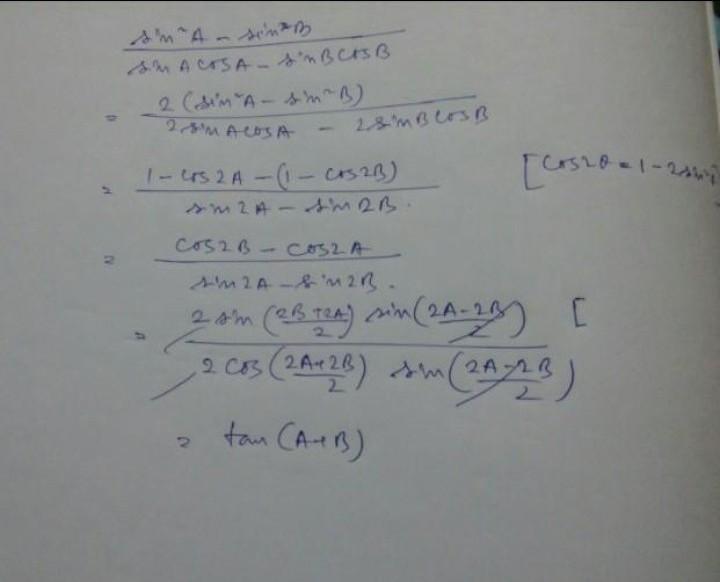 sin²A - sin²B / sinA cosA - sinB cosB
= 2 (sin²A - sin²B) / 2 sinA cosA - 2 sinB cosB
= 1 - cos2A - (1 - cos2B) / sin2A - sin2B. [cos2θ = 1 - 2sin²
= cos2B - cos2A / sin2A - sin2B.
= 2 sin (2B+2A/2) sin (2A-2B/2) / 2 cos (2A+2B/2) sin (2A-2B/2) [
= tan (A+B)